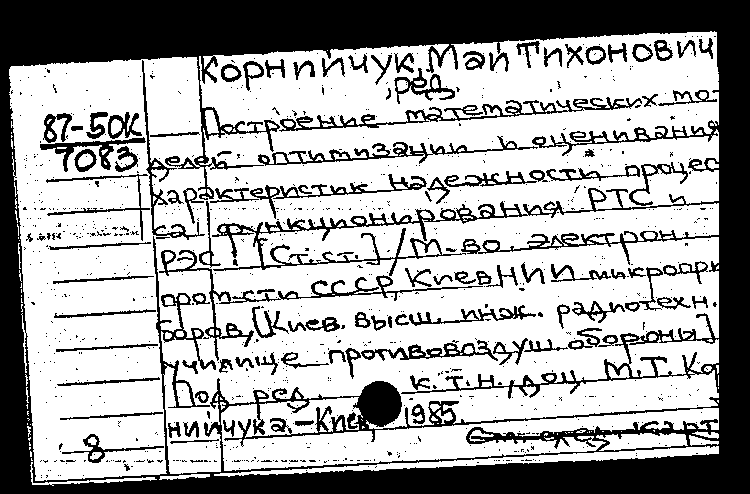 Корнийчук, Май Тихонович
, ред.
87-50К
7083
Построение математических мо-
делей оптимизации и оценивания
характеристик надежности процес
са функционирования РТС и
РЭС: [Ст.ст.] / М-во. электрон.
пром-сти СССР, Киев НИИ микропри
боров, [Киев. высш. инж. радиотехн.
училище противовоздуш. обороны]
Под ред. к.т.н., доц. М.Т. Кор
нийчука. – Киев, 1985.
8
См. след. карт